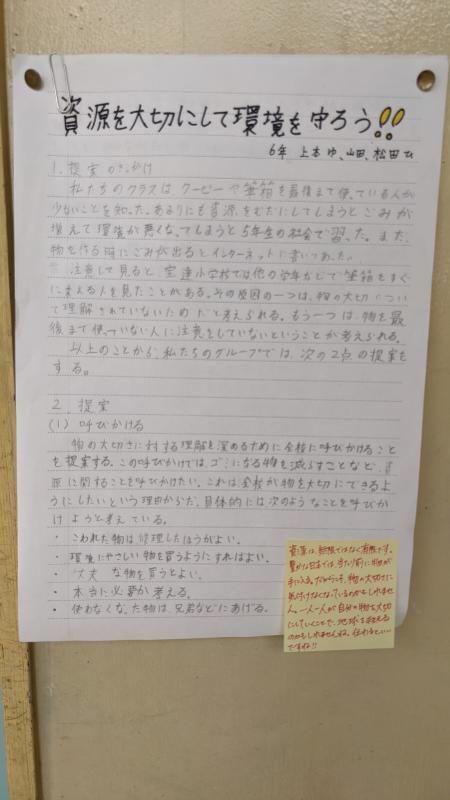 資源を大切にして環境を守ろう!!
6年 上本ゆ、山田、松田ひ
1. 提案のきっかけ
私たちのクラスはクーピーや筆箱を最後まで使っている人が
少ないことを知った。あまりにも資源をむだにしてしまうとごみが
増えて環境が悪くなってしまうと5年生の社会で習った。また、
物を作る時にごみが出るとインターネットに書いてあった。
注意して見ると、宝達小学校では他の学年などで筆箱をすぐ
に変える人を見たことがある。その原因の一つは、物の大切について
て理解されていないためだと考えられる。もう一つは、物を最
後まで使っていない人に注意をしていないということが考えられる。
以上のことから、私たちのグループでは、次の2点の提案を
する。
2. 提案
(1) 呼びかけ
物の大切さに対する理解を深めるために全校に呼びかけること
を提案する。この呼びかけでは、ゴミになる物を減らすことなど、
に関することを呼びかけたい。これは全校が物を大切にできるよ
うにしたいという理由からだ。具体的には次のようなことを呼びか
けようと考えている。
・こわれた物は修理したほうがよい。
・環境にやさしい物を買うようにすればよい。
・丈夫な物を買うとよい。
・本当に必要か考える。
・使わなくなった物は、兄弟などにあげる。
資源は、無限ではなく有限です。
豊かな日本では、当たり前に物が
手に入る。だからこそ、物の大切さに
気付けなくなっているのかもしれませ
ん。一人一人が自分の物を大切
にしていくことで、地球を救える
のかもしれませんね。伝わるといい
ですね!!